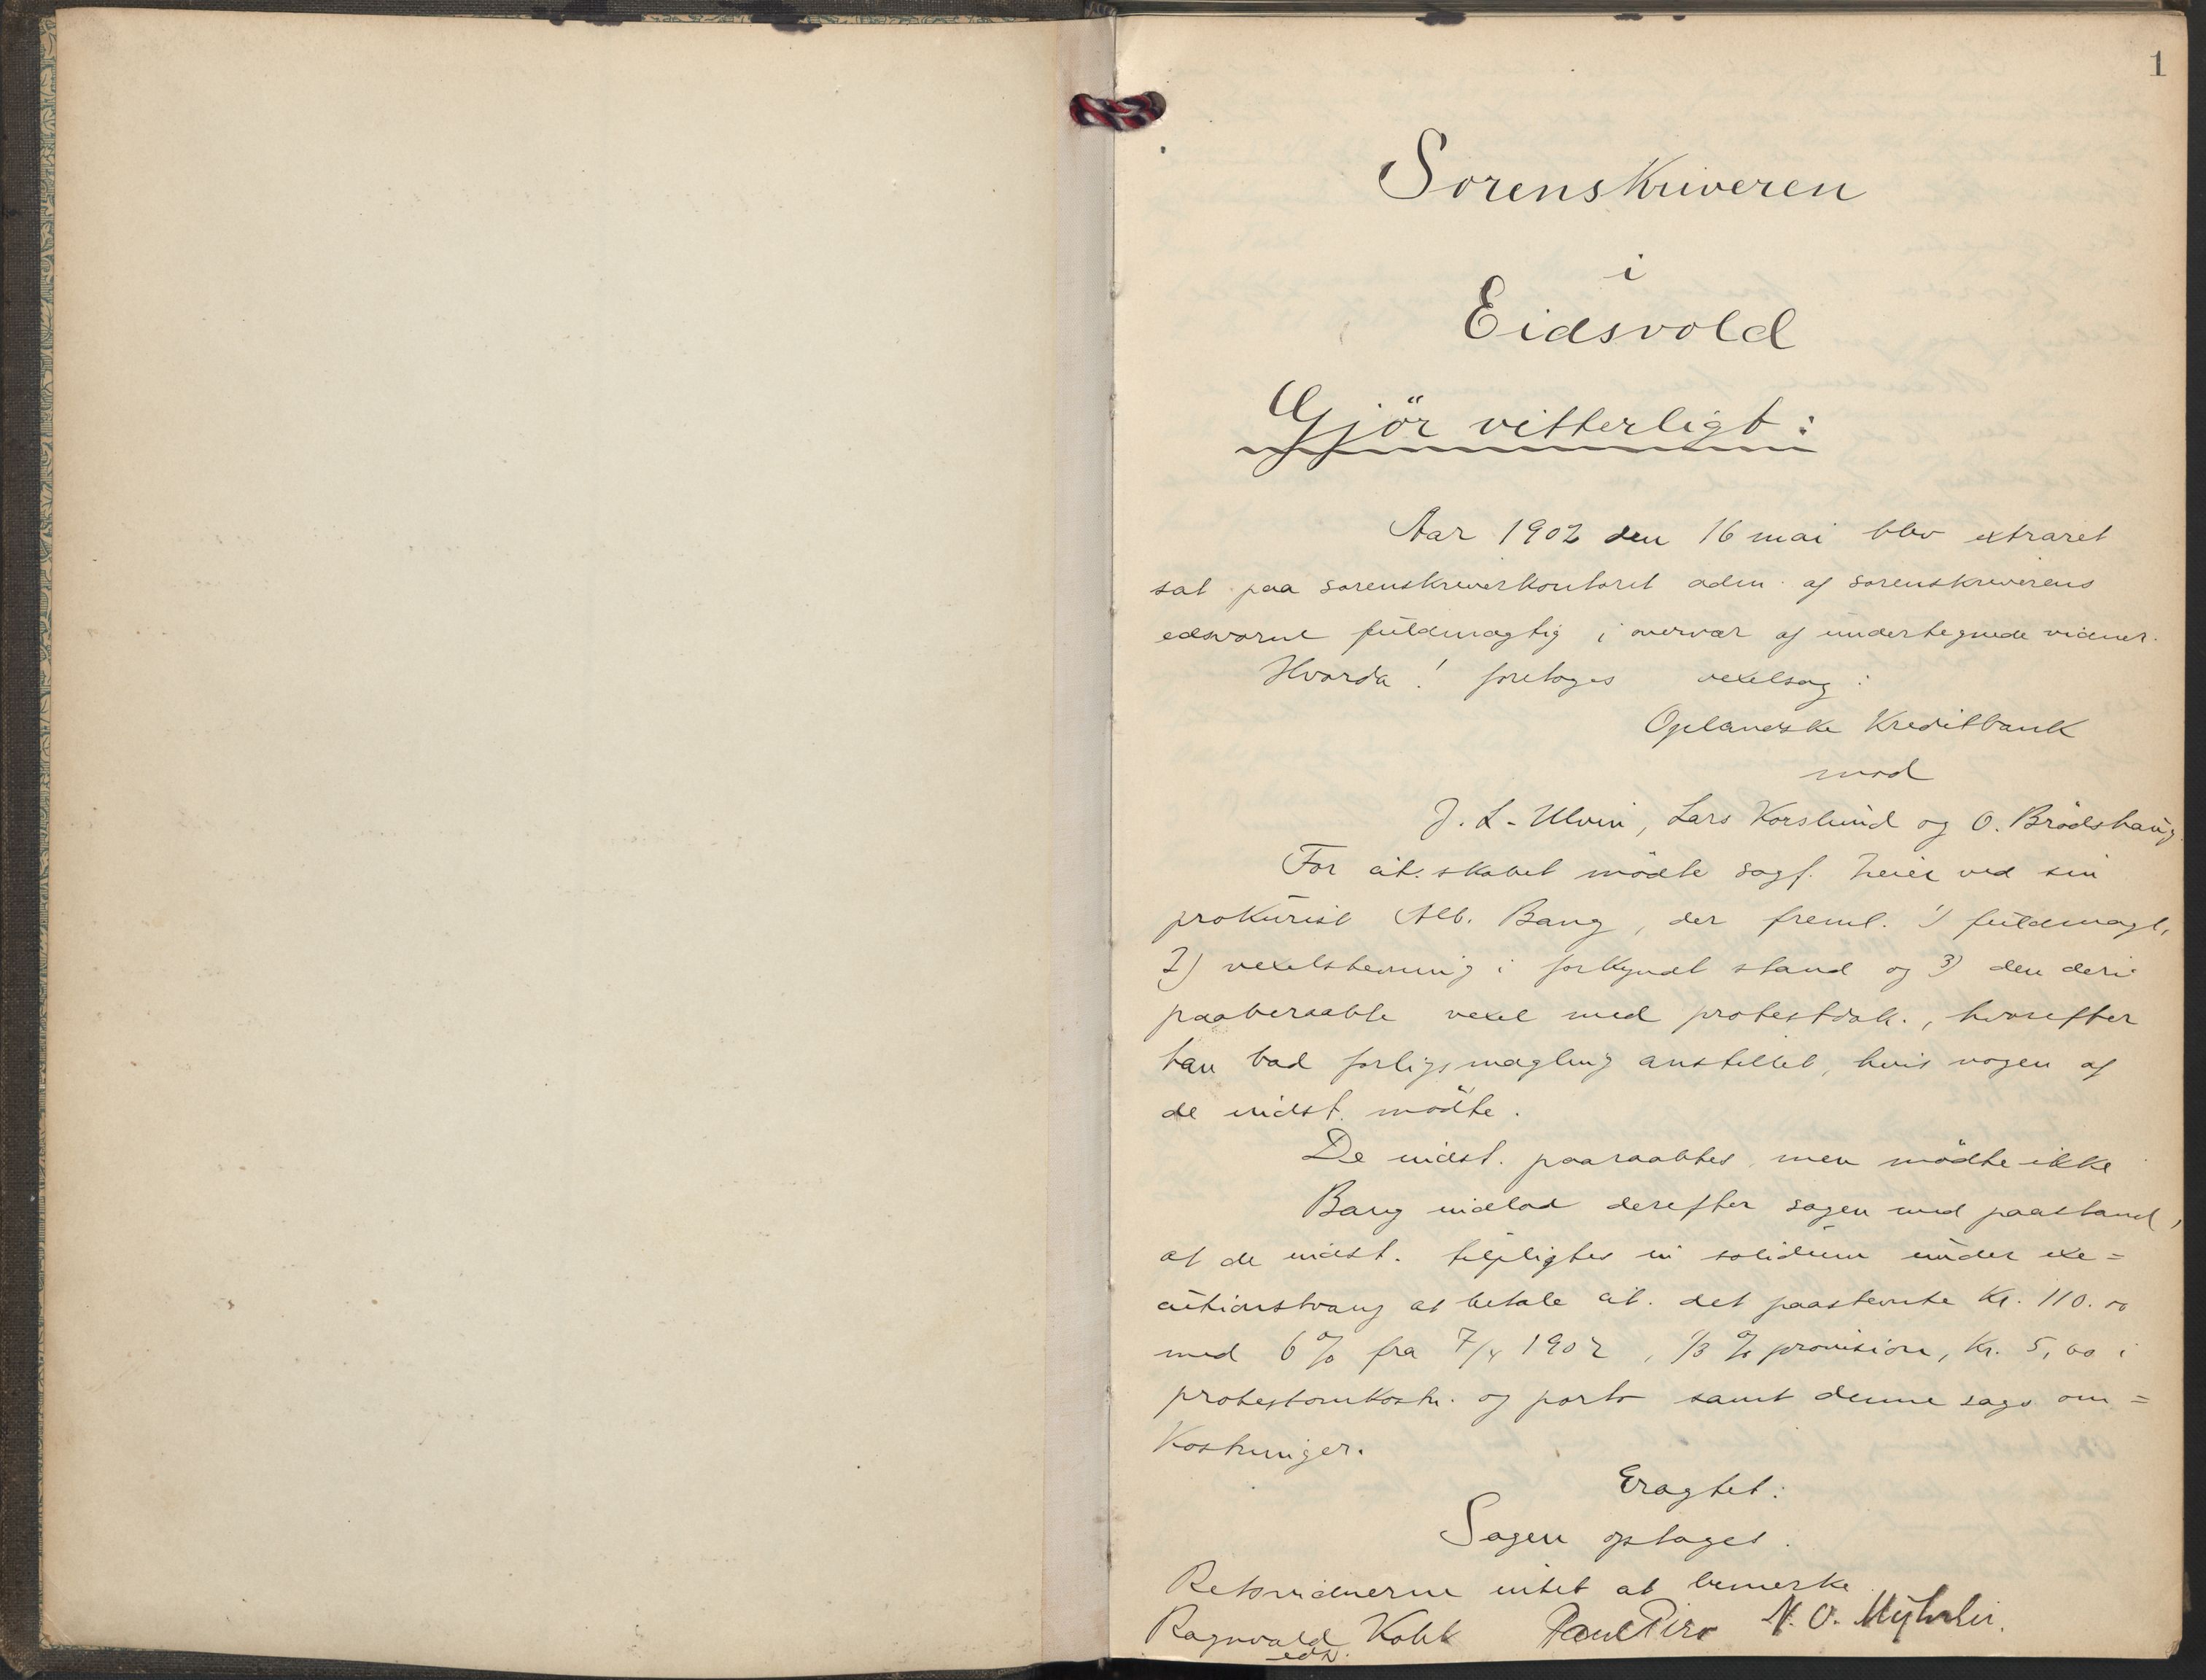 1
Sorenskriveren
i
Eidsvold
Gjör vitterligt:
Aar 1902 den 16 mai blev extraret
sat paa sorenskriverkontoret adm. af sorenskriverens
edsvorne fuldmægtig i overvær af undertegnede vidner.
Hvorda! foretoges vexelsag:
Oplandske Kreditbank
mod
J. L. Ulvin, Lars Korslund og O. Brödshaug.
For cit.skabet mödte sagf. Heier ved sin
prokurist Alb. Bang, der freml. 1) fuldmagt,
2) vexelstevning i forkyndt stand og 3) den deri
paaberaabte vexel med protestdok., hvorefter
han bad forligsmægling anstillet, hvis nogen af
de indst. mödte.
De indst. paaraabtes, men mödte ikke
Bang indlod derefter sagen med paastand,
at de indst. tilpligtes in solidum under exe=
cutionstvang at betale cit. det paastevnte Kr. 110.00
med 6 % fra 7/4 1902, 1/3 % provision, Kr. 5,00 i
protestomkostn. og porto samt denne sags om=
kostninger.
Eragtet:
Sagen optaget.
Retsvidnerne intet at bemerke.
Ragnvald Kobk Paul N. O. Myhrlir.
eds.